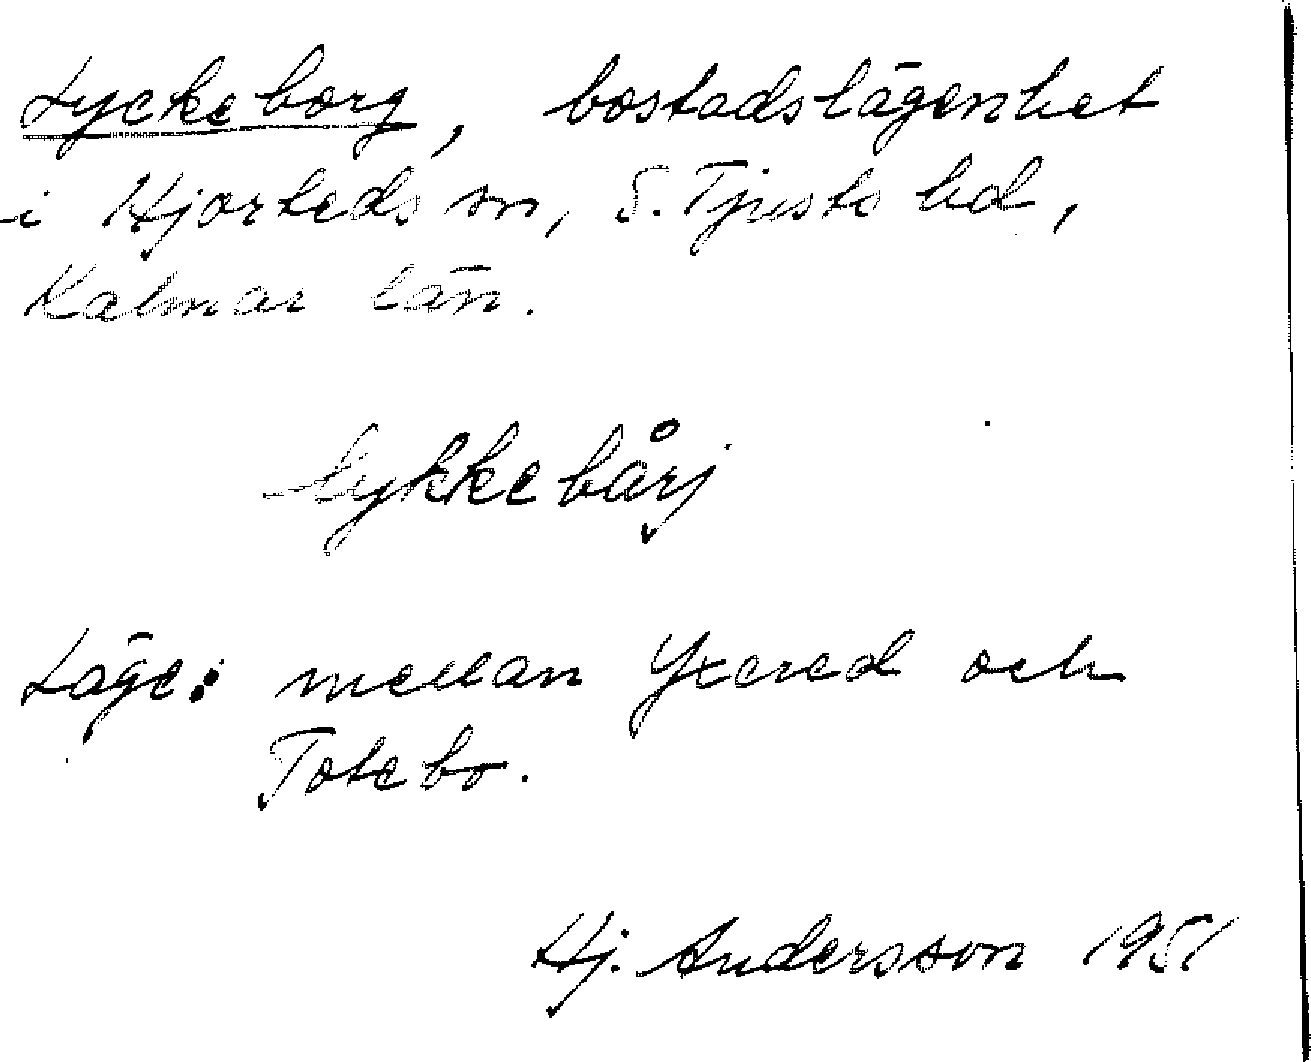 Lyckeborg, bostadslägenhet
i Hjorteds sn, S. Tjusts hd,
Kalmar län.
Lykkebårj
Läge: mellan Yxered och
Totebo.
Hj. Andersson 1951